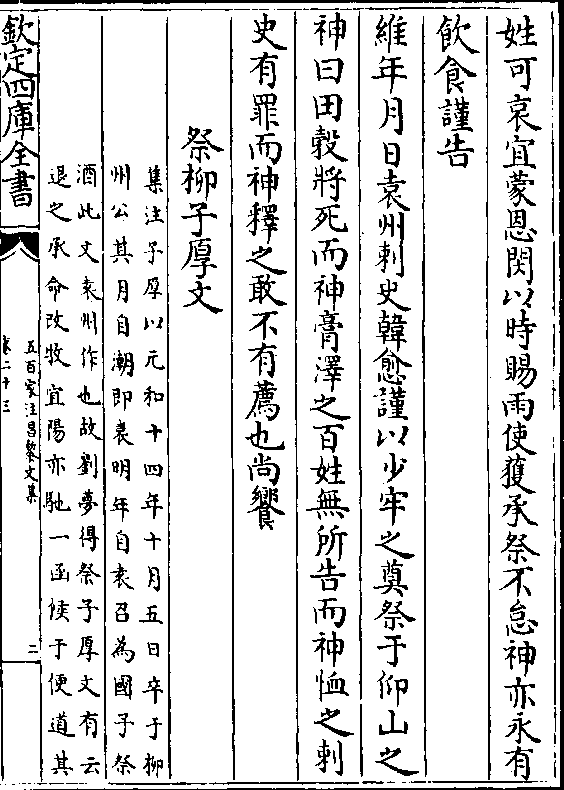 姓可哀宜蒙恩閔以時賜雨使獲承祭不怠神亦永有
飲食謹告
維年月日袁州刺史韓愈謹以少牢之奠祭于仰山之
神曰田穀將死而神膏澤之百姓無所告而神恤之刺
史有罪而神釋之敢不有薦也尚饗
祭柳子厚文
集注子厚以元和十四年十月五日卒于柳
州公其月自潮即袁明年自袁召為國子祭
酒此文袁州作也故劉夢得祭子厚文有云
退之承命改牧宜陽亦馳一函候于便道其
欽定四庫全書
五百家注昌黎文集
卷二十三
二